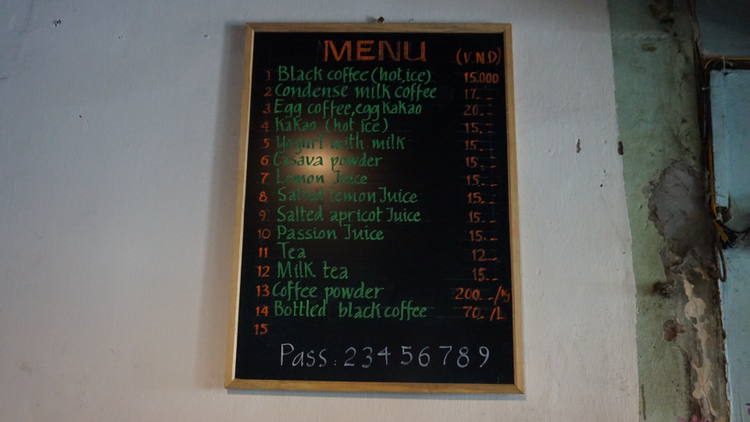 MENU (V.N.D)
1 Black coffee (hot, ice) 15.000
2 Condense milk coffee 17.-
3 Egg coffee, egg Kakao 20.-
4 Kakao (hot, ice) 15.-
5 Yogurt with milk 15.-
6 Casava powder 15.-
7 Lemon Juice 15.-
8 Salted lemon Juice 15.-
9 Salted apricot Juice 15.-
10 Passion Juice 15.-
11 Tea 12.-
12 Milk tea 15.-
13 Coffee powder 200.-/kg
14 Bottled black coffee 70.-/L
15
Pass: 23456789